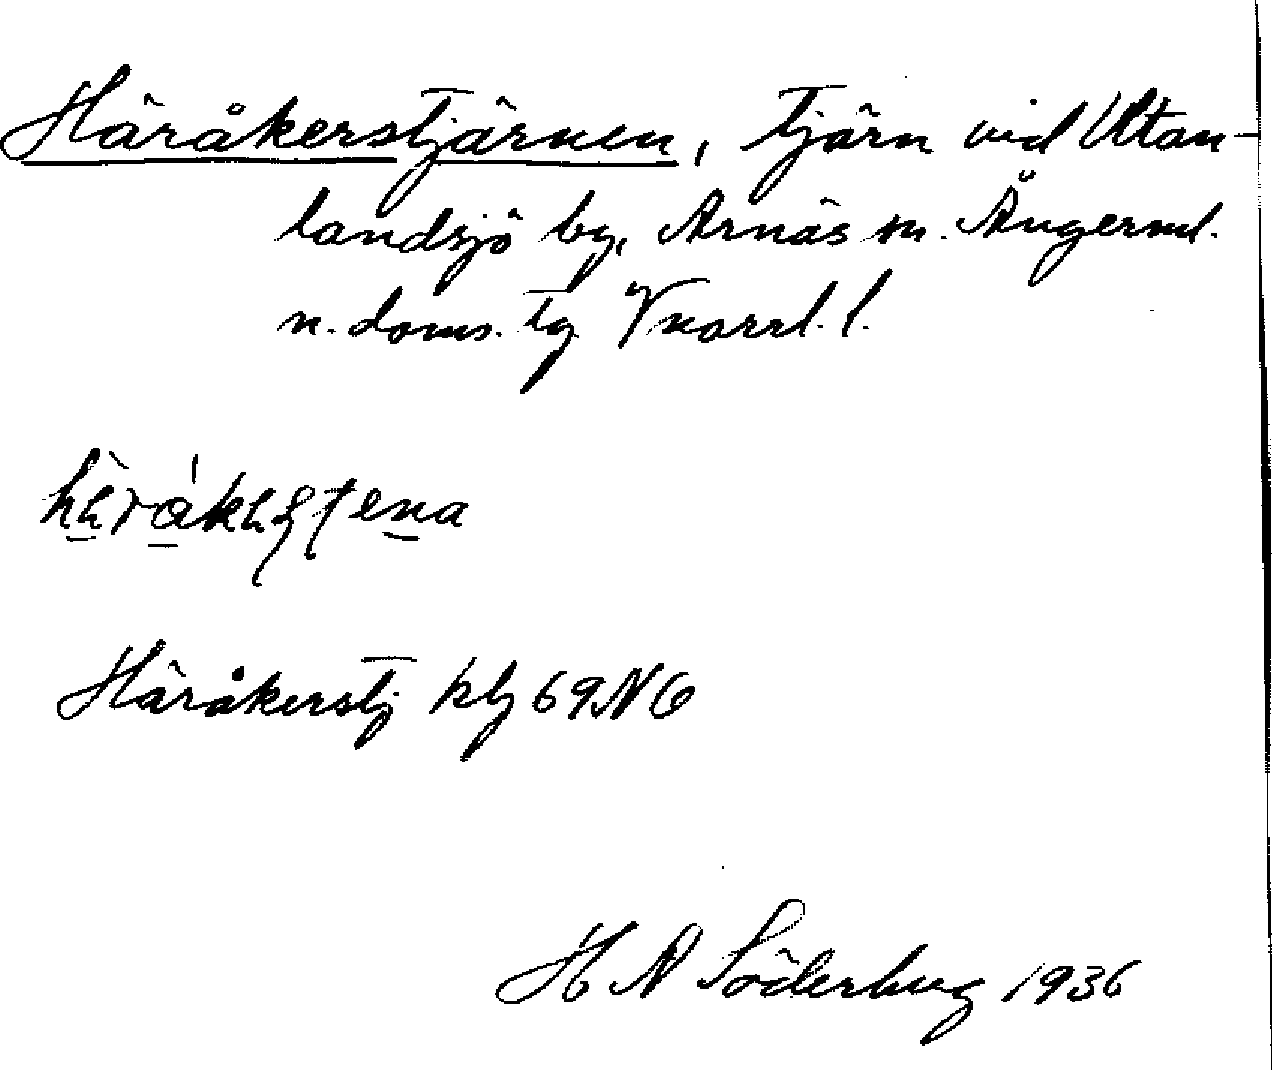 Häråkerstjärnen, tjärn vid Utan-
landsjö by, Arnäs sn. Ångerml.
n. doms. tg Vnorrl. l.
Häråkerstj kbl 69 NO
H N Söderberg 1936